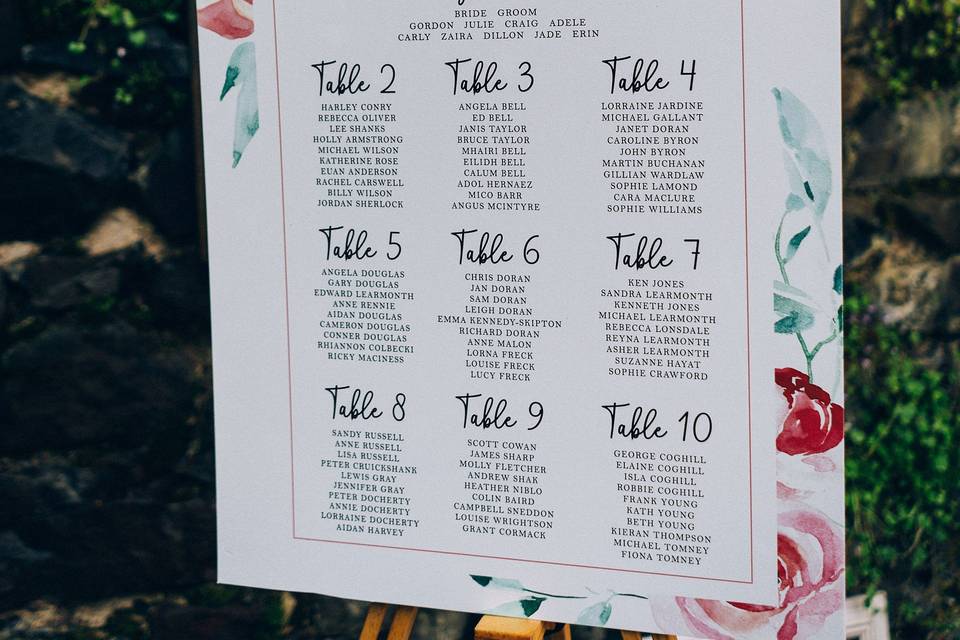 BRIDE GROOM
GORDON JULIE CRAIG ADELE
CARLY ZAIRA DILLON JADE ERIN
Table 2
HARLEY CONRY
REBECCA OLIVER
LEE SHANKS
HOLLY ARMSTRONG
MICHAEL WILSON
KATHERINE ROSE
EUAN ANDERSON
RACHEL CARSWELL
BILLY WILSON
JORDAN SHERLOCK
Table 3
ANGELA BELL
ED BELL
JANIS TAYLOR
BRUCE TAYLOR
MHAIRI BELL
EILIDH BELL
CALUM BELL
ADOL HERNAEZ
MICO BARR
ANGUS MCINTYRE
Table 4
LORRAINE JARDINE
MICHAEL GALLANT
JANET DORAN
CAROLINE BYRON
JOHN BYRON
MARTIN BUCHANAN
GILLIAN WARDLAW
SOPHIE LAMOND
CARA MACLURE
SOPHIE WILLIAMS
Table 5
ANGELA DOUGLAS
GARY DOUGLAS
EDWARD LEARMONTH
ANNE RENNIE
AIDAN DOUGLAS
CAMERON DOUGLAS
CONNER DOUGLAS
RHIANNON COLBECKI
RICKY MACINESS
Table 6
CHRIS DORAN
JAN DORAN
SAM DORAN
LEIGH DORAN
EMMA KENNEDY-SKIPTON
RICHARD DORAN
ANNE MALON
LORNA FRECK
LOUISE FRECK
LUCY FRECK
Table 7
KEN JONES
SANDRA LEARMONTH
KENNETH JONES
MICHAEL LEARMONTH
REBECCA LONSDALE
REYNA LEARMONTH
ASHER LEARMONTH
SUZANNE HAYAT
SOPHIE CRAWFORD
Table 8
SANDY RUSSELL
ANNE RUSSELL
LISA RUSSELL
PETER CRUICKSHANK
LEWIS GRAY
JENNIFER GRAY
PETER DOCHERTY
ANNIE DOCHERTY
LORRAINE DOCHERTY
AIDAN HARVEY
Table 9
SCOTT COWAN
JAMES SHARP
MOLLY FLETCHER
ANDREW SHAK
HEATHER NIBLO
COLIN BAIRD
CAMPBELL SNEDDON
LOUISE WRIGHTSON
GRANT CORMACK
Table 10
GEORGE COGHILL
ELAINE COGHILL
ISLA COGHILL
ROBBIE COGHILL
FRANK YOUNG
KATH YOUNG
BETH YOUNG
KIERAN THOMPSON
MICHAEL TOMNEY
FIONA TOMNEY